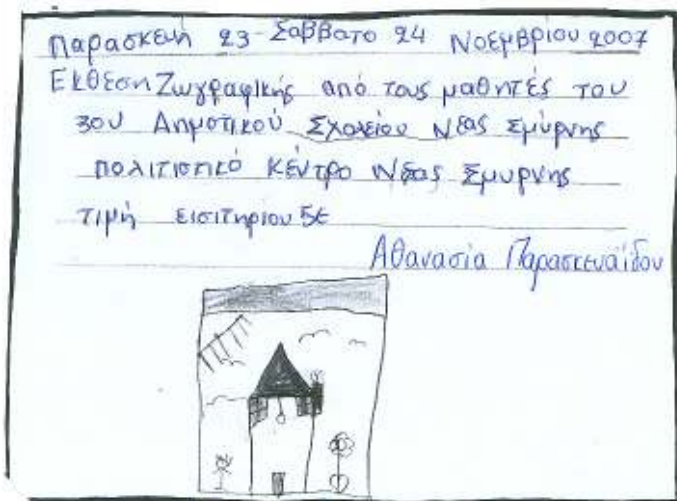 Παρασκευή 23-Σάββατο 24 Νοεμβρίου 2007
Έκθεση Ζωγραφικής από τους μαθητές του
3ου Δημοτικού Σχολείου Νέας Σμύρνης
πολιτιστικό κέντρο Νέας Σμύρνης
τιμή εισιτηρίου 5€
Αθανασία Παρασκευαΐδου